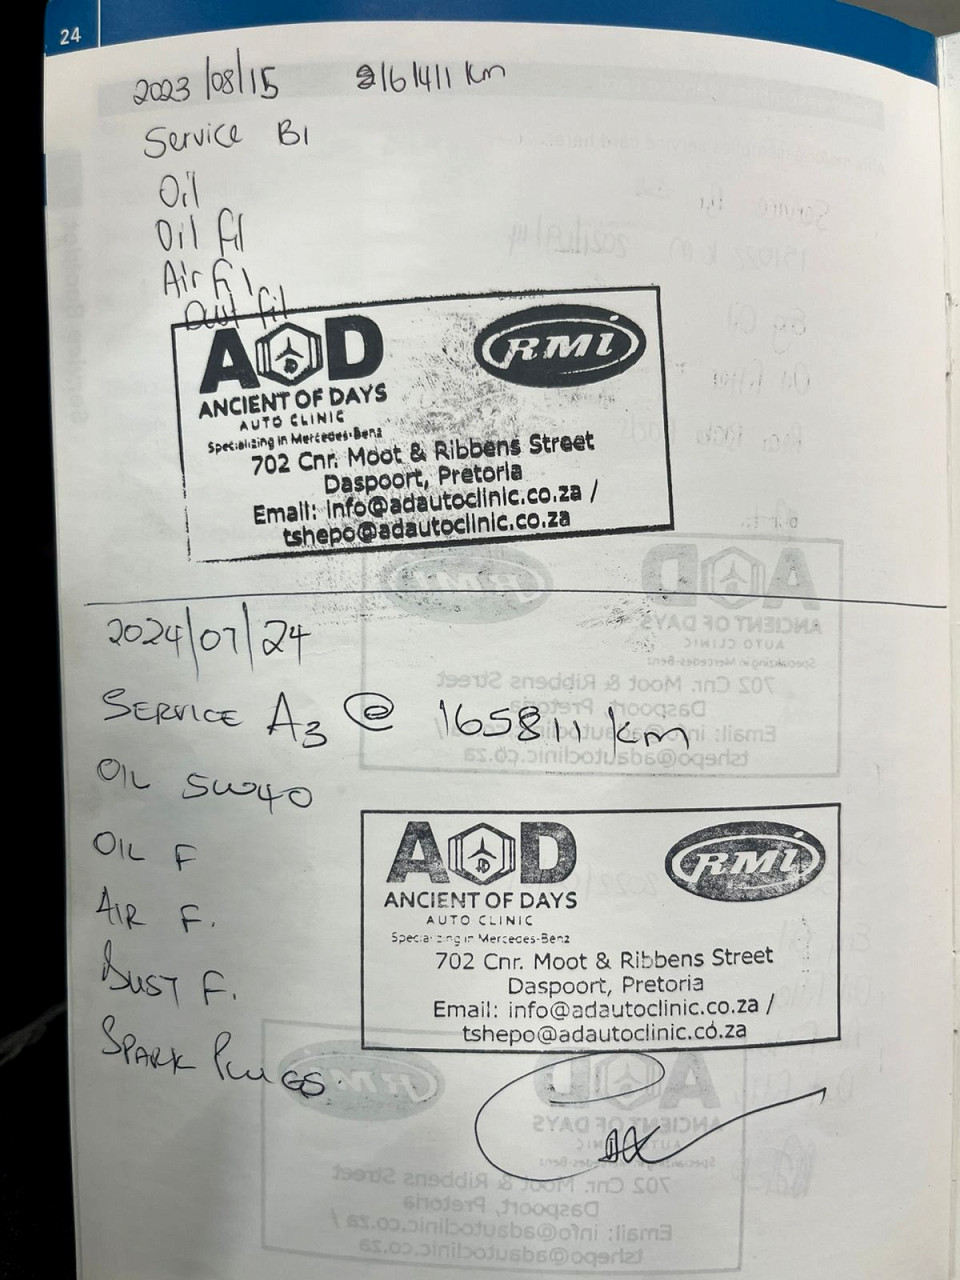 24
2023/08/15 216411 km
Service B1
Oil
Oil fil
Air fil
Dust fil
A D
RMi
ANCIENT OF DAYS
AUTO CLINIC
Specializing in Mercedes-Benz
702 Cnr. Moot & Ribbens Street
Daspoort, Pretoria
Email: info@adautoclinic.co.za /
tshepo@adautoclinic.co.za
2024/07/24
SERVICE A3 @ 165811 km
OIL 5W40
OIL F
AIR F.
DUST F.
SPARK PLUGS.
A D
RMi
ANCIENT OF DAYS
AUTO CLINIC
Specializing in Mercedes-Benz
702 Cnr. Moot & Ribbens Street
Daspoort, Pretoria
Email: info@adautoclinic.co.za /
tshepo@adautoclinic.co.za